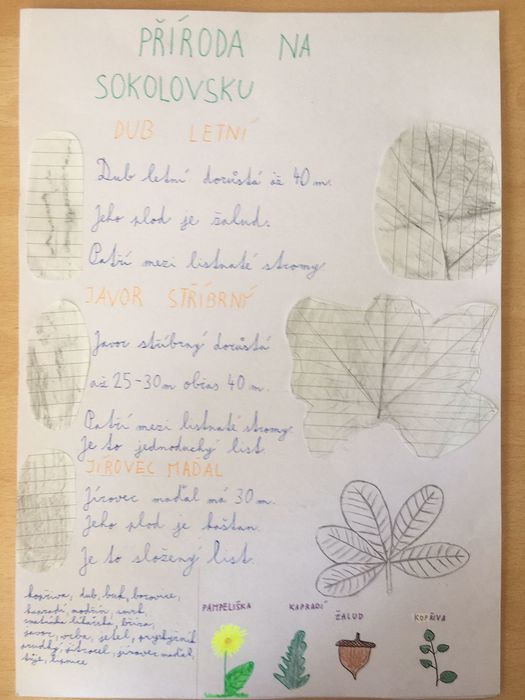 PŘÍRODA NA
SOKOLOVSKU
DUB LETNÍ
Dub letní dorůstá až 40 m.
Jeho plod je žalud.
Patří mezi listnaté stromy
JAVOR STŘÍBRNÝ
Javor stříbrný dorůstá
až 25-30m občas 40 m.
Patří mezi listnaté stromy
Je to jednoduchý list.
JÍROVEC MAĎAL
Jírovec maďal má 30 m.
Jeho plod je kaštan.
Je to složený list.
kopřiva, dub, buk, borovice,
kapradí, modřín, smrk,
lékařská, bříza,
javor, vrba, jetel, pryskyřník
prudký, jitrocel, jírovec maďal,
lípa,
PAMPELIŠKA
KAPRADÍ
ŽALUD
KOPŘIVA